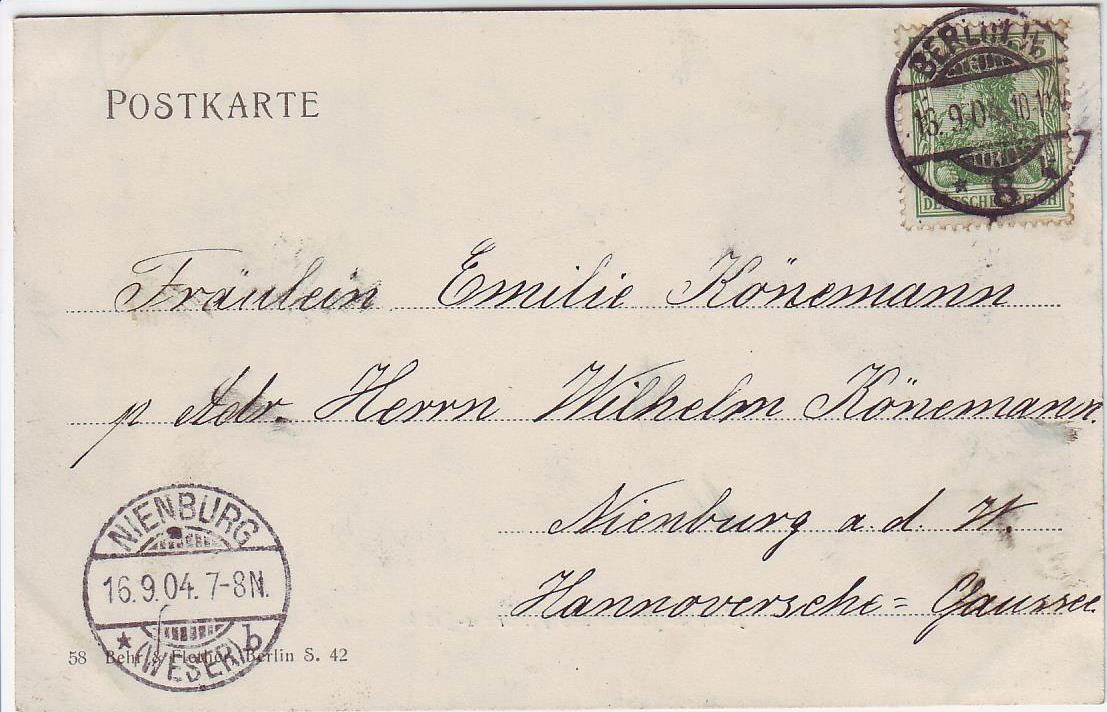 POSTKARTE
BERLIN
16.9.04. 10-11
8 k
DEUTSCHES REICH
Fräulein Emilie Könemann
p Adr. Herrn Wilhelm Könemann.
Nienburg a. d. W.
Hannoversche=
NIENBURG
16.9.04. 7-8N.
* (WESER) b
58 Behr & Berlin S. 42